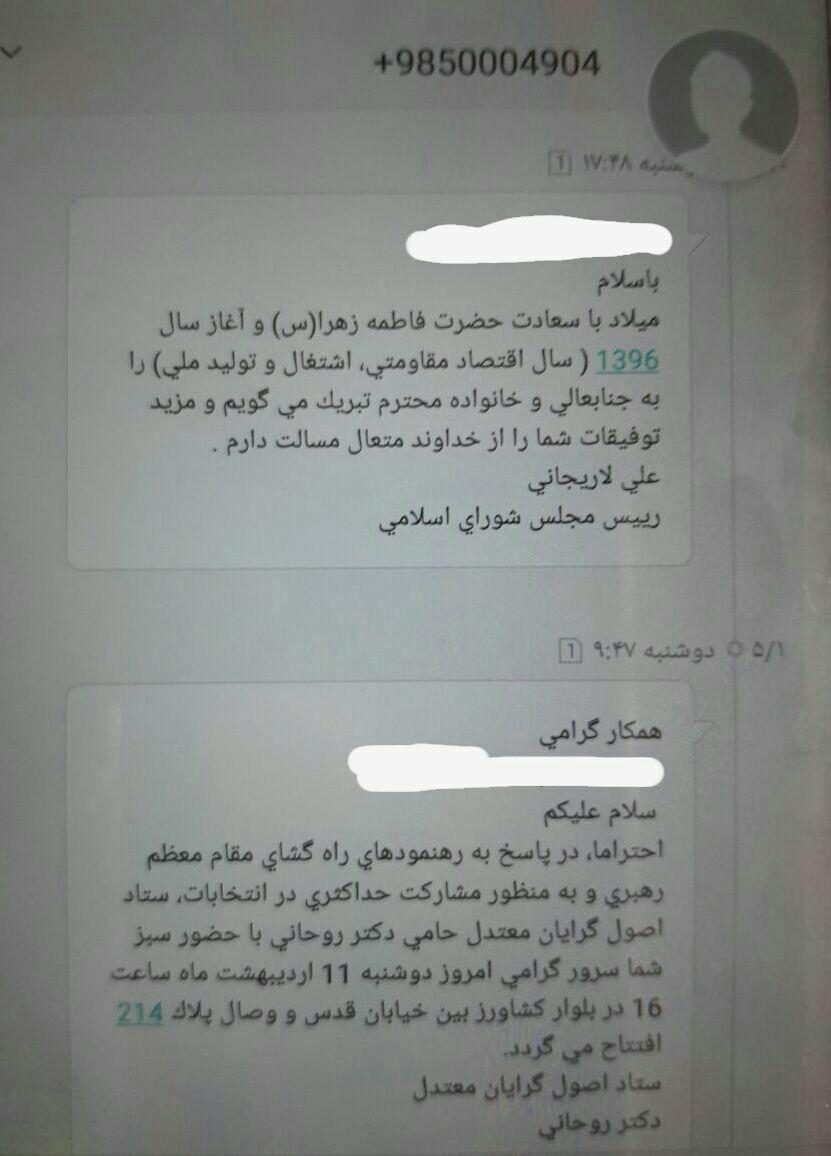 +9850004904
۱۷:۴۸ 1
باسلام
ميلاد با سعادت حضرت فاطمه زهرا(س) و آغاز سال
1396 ( سال اقتصاد مقاومتي، اشتغال و توليد ملي) را
به جنابعالي و خانواده محترم تبريك مي گويم و مزيد
توفيقات شما را از خداوند متعال مسالت دارم .
علي لاريجاني
رييس مجلس شوراي اسلامي
۵/۱ دوشنبه ۹:۴۷ 1
همكار گرامي
سلام عليكم
احتراما، در پاسخ به رهنمودهاي راه گشاي مقام معظم
رهبري و به منظور مشاركت حداكثري در انتخابات، ستاد
اصول گرايان معتدل حامي دكتر روحاني با حضور سبز
شما سرور گرامي امروز دوشنبه 11 ارديبهشت ماه ساعت
16 در بلوار كشاورز بين خيابان قدس و وصال پلاك 214
افتتاح مي گردد.
ستاد اصول گرايان معتدل
دكتر روحاني